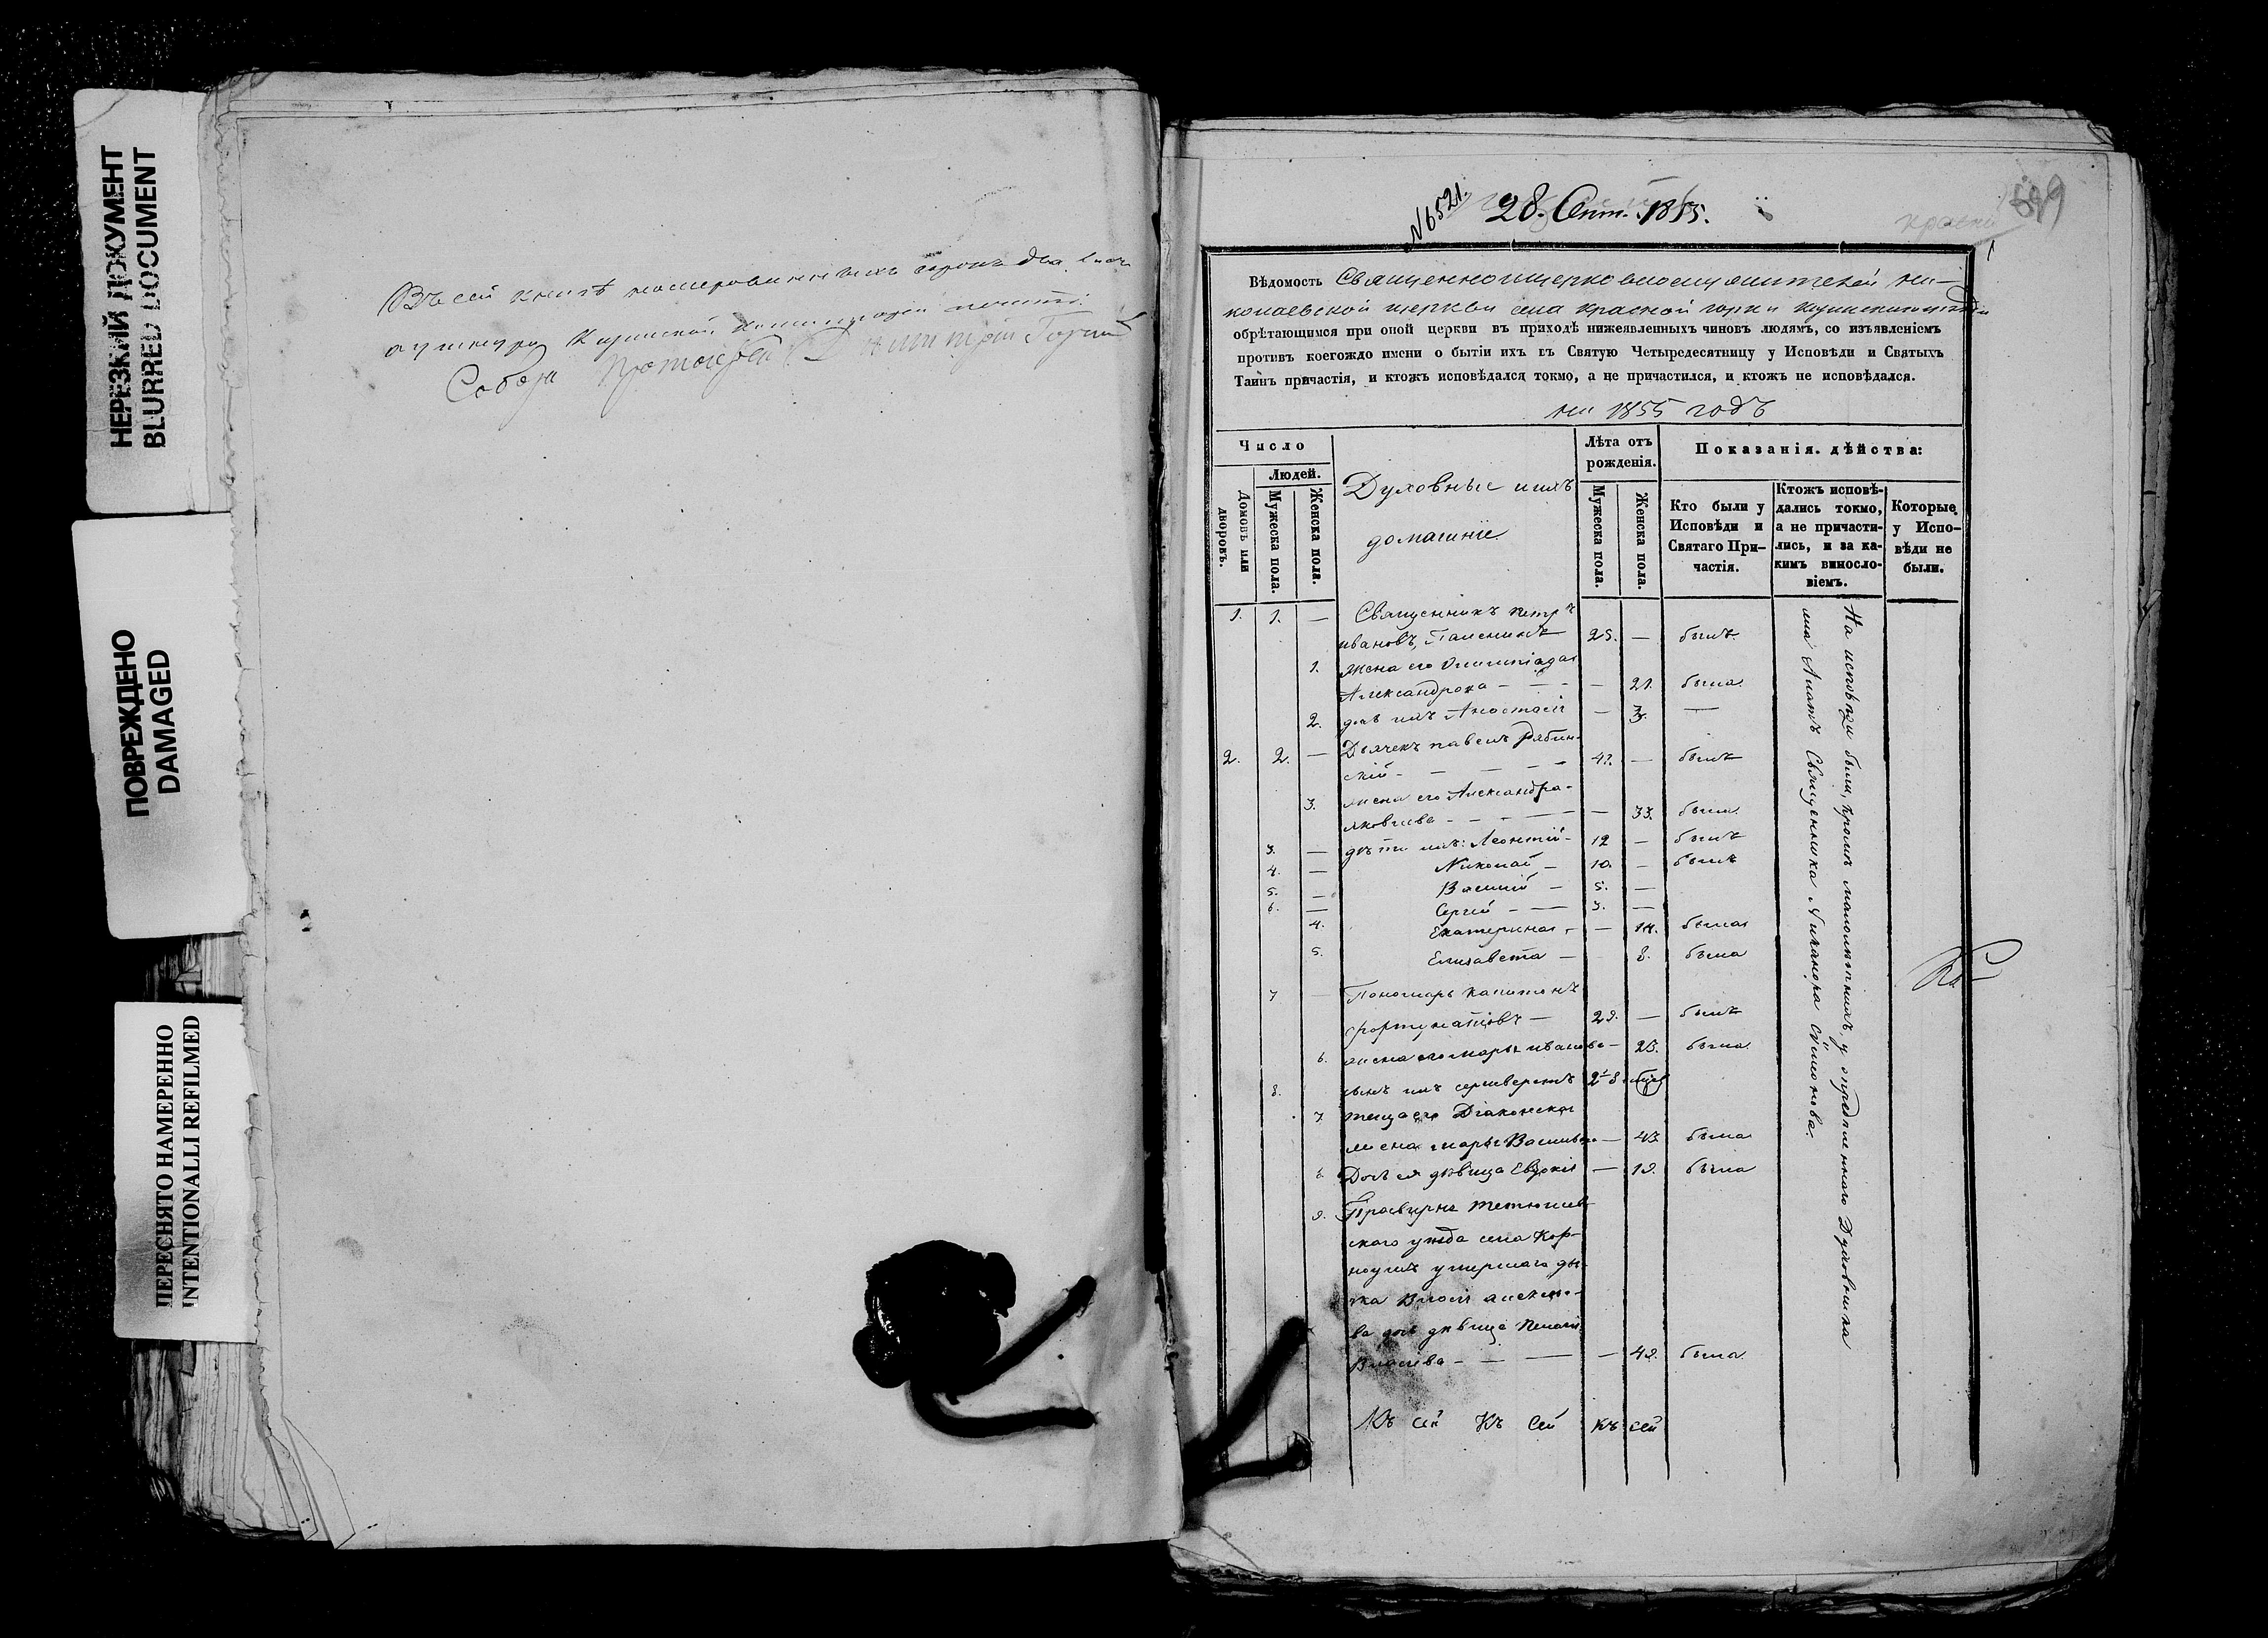 НЕРЕЗКИЙ ДОКУМЕНТ
BLURRED DOCUMENT
ПОВРЕЖДЕНО
DAMAGED
ПЕРЕСНЯТО НАМЕРЕННО
INTENTIONALLI REFILMED
Въ сей книгѣ номерованныхъ сорокъ два
Собора Протоіерей
N 6521.
28. Сент. 1855.
599
Вѣдомость Священноцерковнослужителей Ни-
колаевской церкви села Красной горки
обрѣтающимся при оной церкви въ приходѣ нижеявленныхъ чиновъ людямъ, со изъявленіемъ
противъ коегождо имени о бытіи ихъ въ Святую Четыредесятницу у Исповѣди и Святыхъ
Таинъ причастія, и ктожъ исповѣдался токмо, а не причастился, и ктожъ не исповѣдался.
на 1855 годъ
Число
Людей.
Домовъ или дворовъ.
Мужеска пола.
Женска пола.
Духовные и ихъ
домашніе.
Лѣта отъ
рожденія.
Мужеска пола.
Женска пола.
Показанія дѣйства:
Кто были у
Исповѣди и
Святаго При-
частія.
Ктожъ исповѣ-
дались токмо,
а не причасти-
лись, и за ка-
кимъ винословіемъ.
Которые
у Испо-
вѣди не
были.
1. 1. — Священникъ Петръ
Ивановъ 25. — былъ
1. жена его Олимпіада
Александрова — — — — 21. была
2. дочь ихъ Анастасія — 3. —
2. 2. — Дьячекъ Павелъ Рябин-
скій — — — — 42. — былъ
3. жена его Александра
Яковлева — — — — 33. была
3. — дѣти ихъ: Леонтій — 12 — былъ
4. — Николай — 10. — былъ
5. — Василій — 5. —
6. — Сергій — — 3. —
4. Екатерина — — 14. была
5. Елисавета — 8. была
7 — Пономарь Капитонъ
Фортунатовъ — 29. — былъ
6. жена его Марья Иванова — 25. была
8. сынъ ихъ
7. теща его Діаконская
жена Марья Васильева — 43 была
8. Дочь ея дѣвица Евдокія — 19. была
9. Просвирня Тетюшев-
скаго уѣзда села Кор-
ноухъ умершаго дья-
ка Власія Алексѣе-
ва дочь дѣвица Пелагія
Власіева — — — — 49. была
Къ сей Къ сей къ сей
На исповѣди были, кромѣ малолѣтнихъ, у опредѣленнаго Духовника
села Алатъ Священника Никанора Симонова.